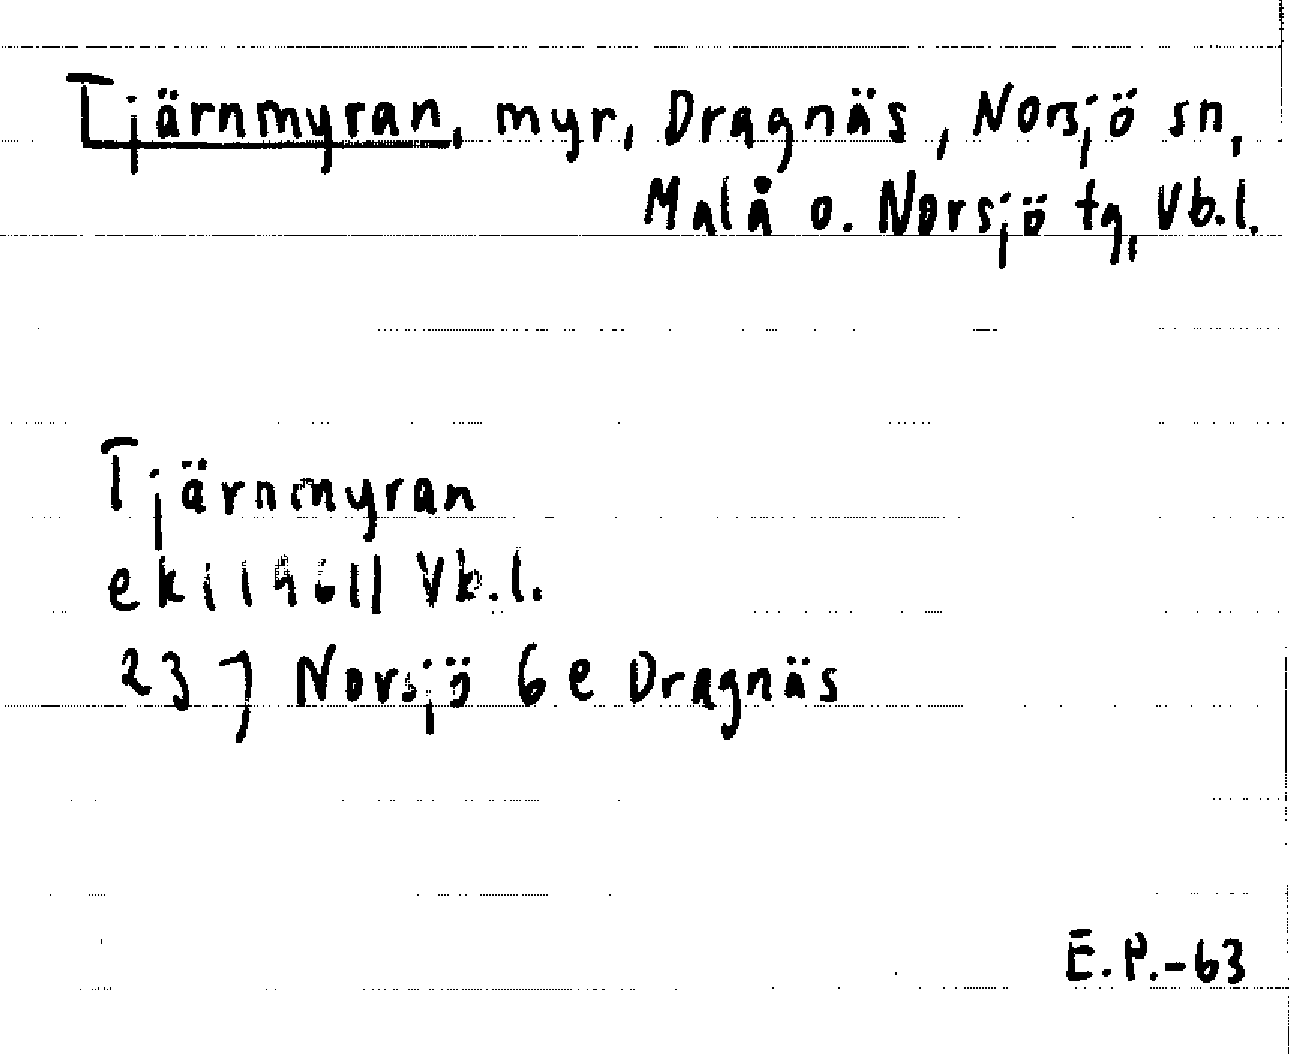 Tjärnmyran, myr, Dragnäs, Norsjö sn,
Malå o. Norsjö tg, Vb.l.
Tjärnmyran
ek 1961 Vb.l.
23 J Norsjö 6 e Dragnäs
E.P.-63